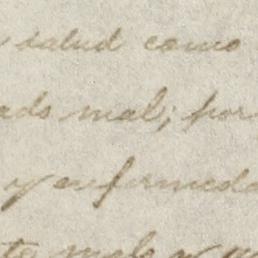 salud como
ads mal; por
y enfermeda